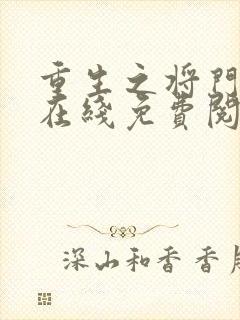 重生之将門
在綫免費閱
深山和香香